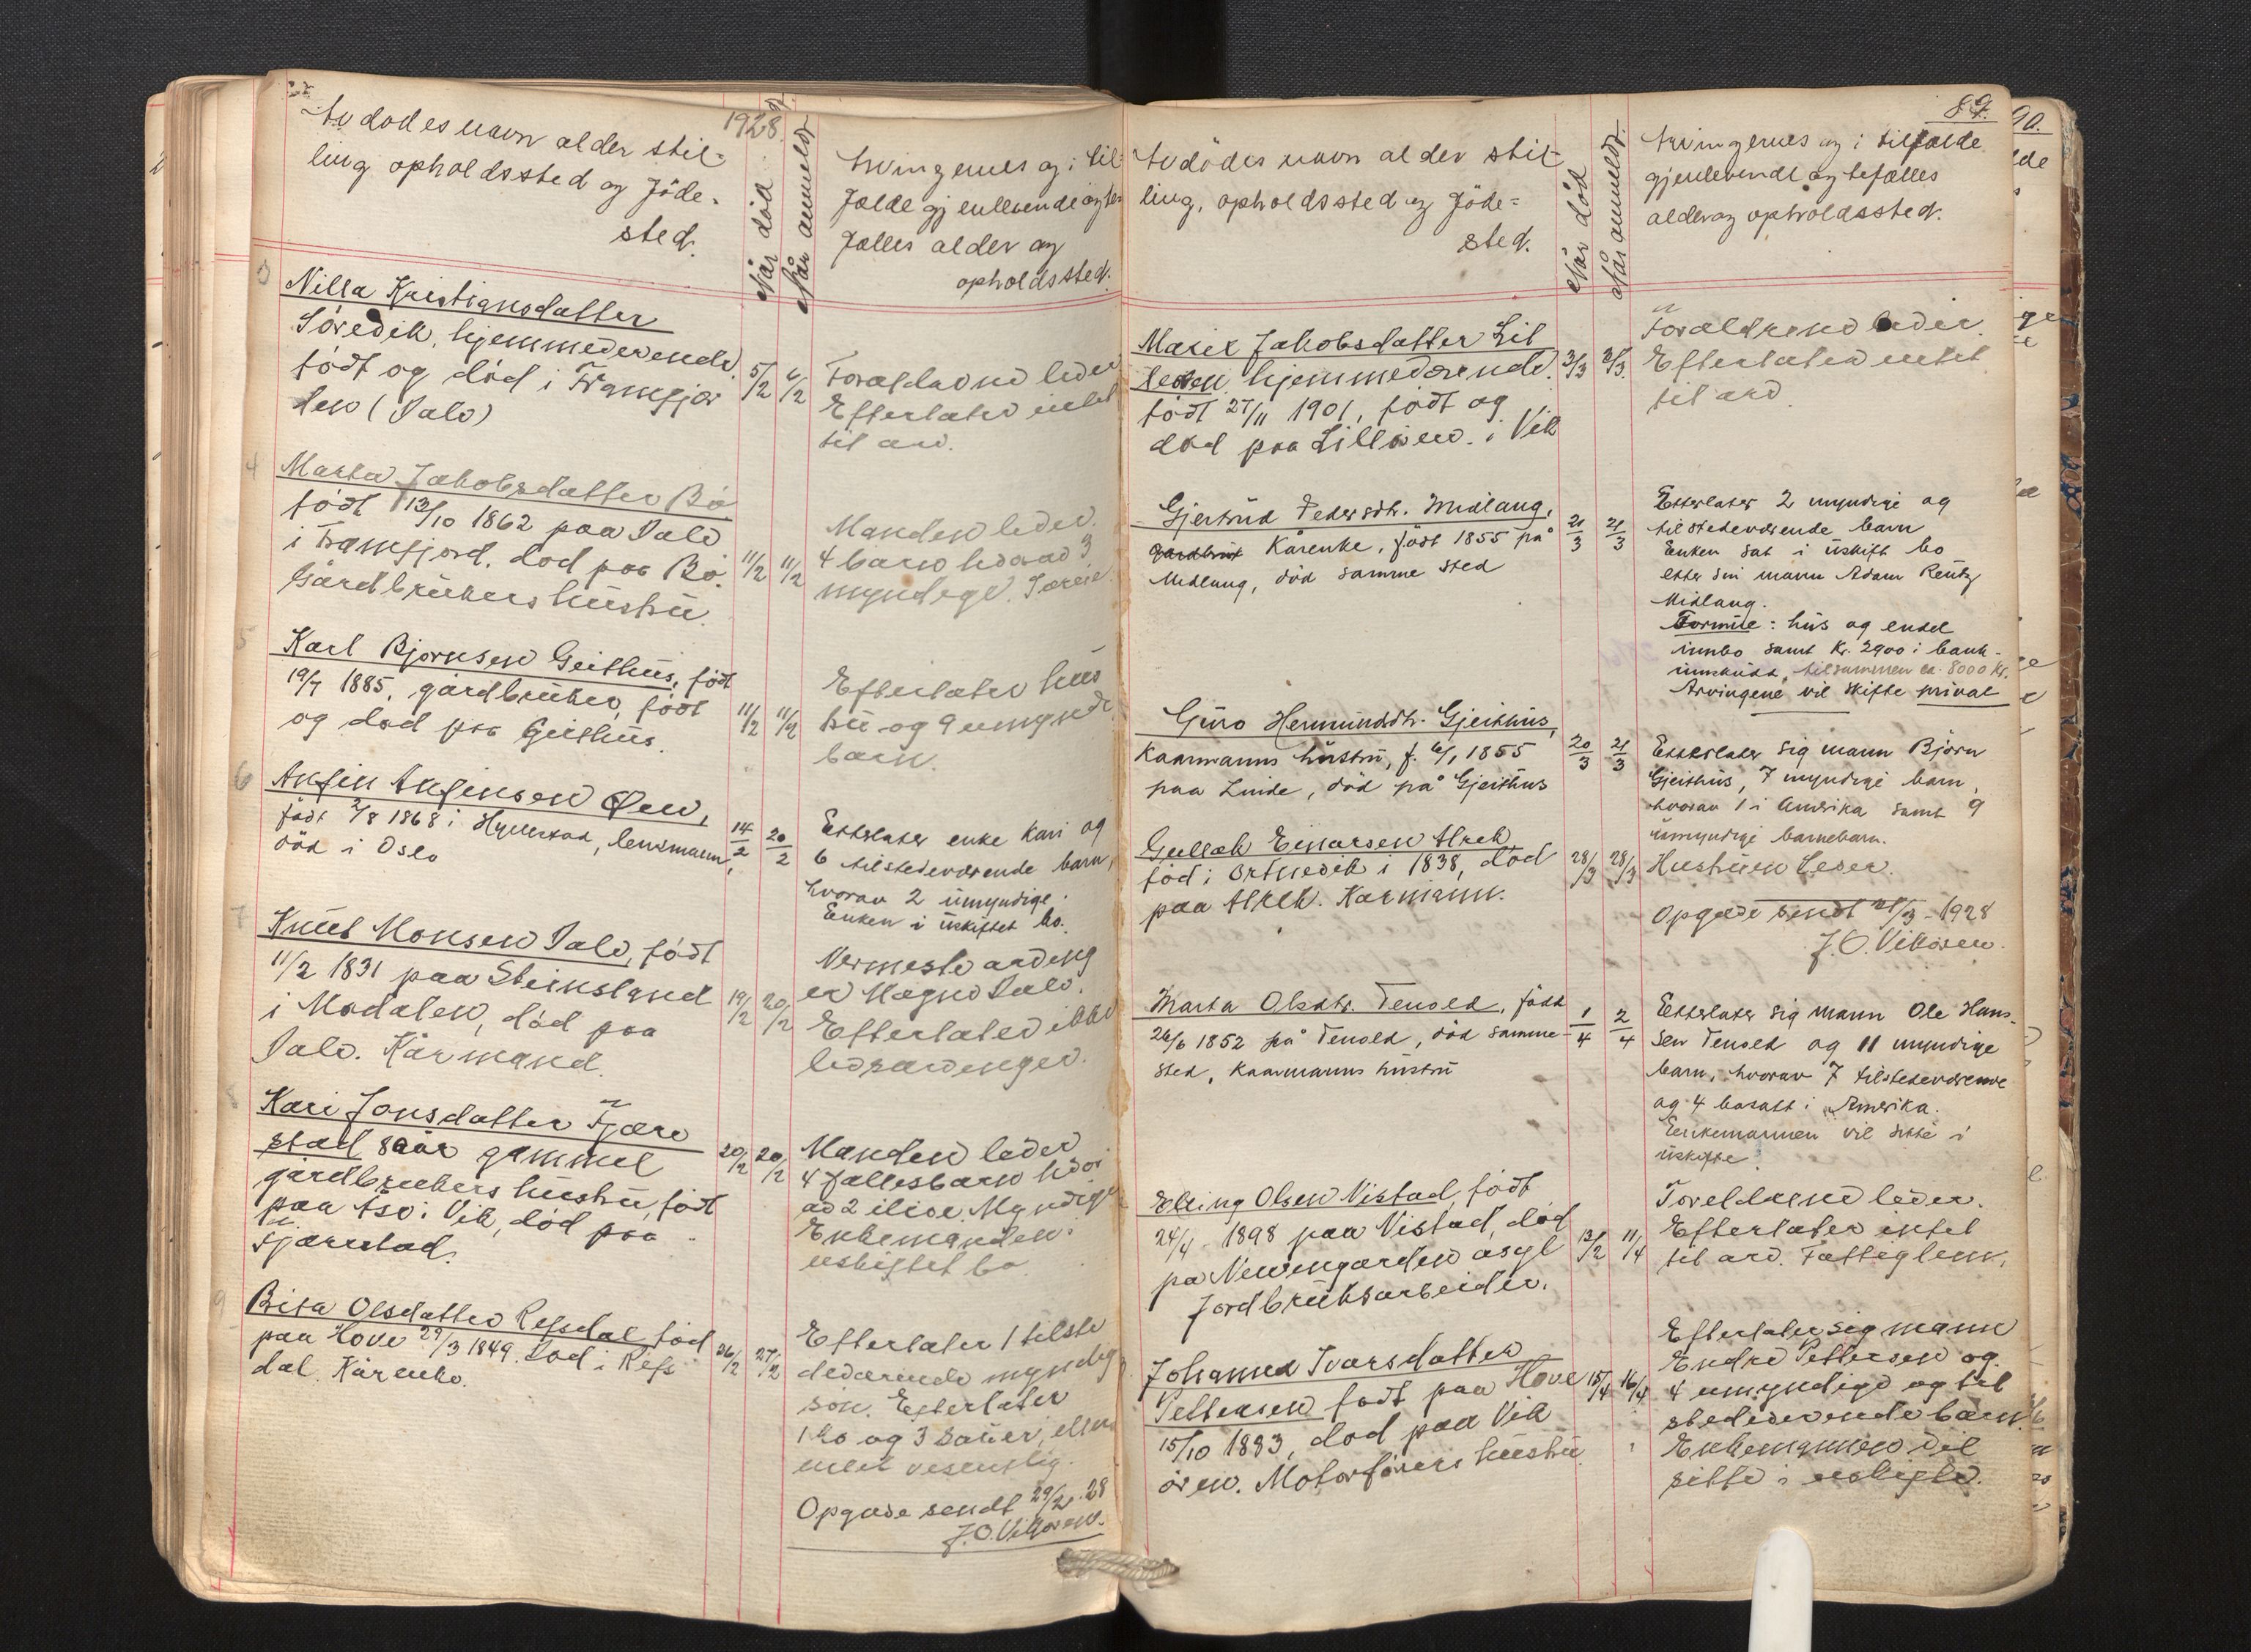 1928
Avdødes navn alder stil-
ling opholdssted og føde-
sted.
Når død
Når anmeldt
Arvingernes og i til-
fælde gjenlevende ægte-
fælles alder og
opholdssted.
3
Nilsa Kristiansdatter
Sørevik, hjemmeværende,
født og død i Framfjor
den (Dale)
5/2 6/2
Forældrene lever
Efterlater intet
til arv.
4
Marta Jakobsdatter Bø
født 13/10 1862 paa Dale
i Framfjord, død paa Bø.
Gårdbrukers hustru.
11/2 11/2
Manden lever.
4 barn hvorav 3
myndige.
5
Karl Bjørnsen Geithus, født
19/7 1885, gårdbruker, født
og død paa Geithus.
11/2 11/2
Efterlater hus
tru og 9 umyndi
barn.
6
Anfin Anfinsen Øen,
født 2/8 1868 i Hyllestad, lensmann,
død i Oslo
14/2 20/2
Etterlater enke Kari og
6 tilstedeværende barn,
hvorav 2 umyndige.
Enken i uskiftet bo.
7
Knut Monsen Dale, født
11/2 1831 paa Steinsland
i Modalen, død paa
Dale. Kårmand.
19/2 20/2
Nermeste arving
er Magne Dale.
Efterlater ikke
livsarvinger.
8
Kari Jonsdatter Fjære
stad 80 år gammel
gårdbrukers hustru, født
paa Åse i Vik, død paa
Fjærestad.
20/2 20/2
Manden lever
4 fællesbarn hvor
av 2 i live. Myndige
Enkemanden i
uskiftet bo.
9
Brita Olsdatter Refsdal, fød
paa Hove 29/3 1849. Død i Refs
dal. Kårenke.
26/2 27/2
Efterlater 1 tilste
deværende myndig
søn. Efterlater
1 ko og 3 sauer, ellers
intet vesentlig.
Opgave sendt 29/2 28
J.O. Vikøren.
89.
Avdødes navn alder stil-
ling, opholdssted og føde-
sted.
Når død
Når anmeldt
Arvingernes og i tilfælde
gjenlevende ægtefælles
alder og opholdssted.
Marie Jakobsdatter Lil
leøen, hjemmeværende.
født 27/11 1901, født og
død paa Lilløren i Vik
3/3 3/3
Forældrene lever.
Efterlater intet
til arv
Gjertrud Pedersdtr. Midlang,
Kårenke, født 1855 på
Midlang, død samme sted
20/3 21/3
Etterlater 2 myndige og
tilstedeværende barn
Enken sat i uskift bo
etter sin mann Adam
Midlang.
Formue: hus og endel
innbo samt Kr. 2900 i bank-
innskudd, tilsammen ca. 8000 kr.
Arvingene vil skifte privat
Guro Hermundsdtr. Gjeithus,
Kaarmanns hustru, f. 6/1 1855
paa Linde, død på Gjeithus
20/3 21/3
Etterlater sig mann Bjørn
Gjeithus, 7 myndige barn,
hvorav 1 i Amerika samt 9
umyndige barnebarn.
Gullak Einarsen Hrek,
fød i Ortnevik i 1838, død
paa Hrek. Karmann.
28/3 28/3
Hustruen lever.
Opgave sendt 28/3 - 1928
J.O. Vikøren.
Marta Olsdtr. Tenold, født
26/6 1852 på Tenold, død samme-
sted, kaarmanns hustru
1/4 2/4
Etterlater sig mann Ole Han-
sen Tenold og 11 myndige
barn, hvorav 7 tilstedeværende
og 4 bosatt i Amerika.
Enkemannen vil sitte i
uskifte.
Elling Olsen Vistad, født
24/4 1898 paa Vistad, død
på Nevengarden asyl
Jordbruksarbeider.
13/2 11/4
Foreldrene lever.
Efterlater intet
til arv. Fattiglem.
Johanna Ivarsdatter
Pettersen født paa Hove
15/10 1883, død paa Vik
øren. Motorførers hustru.
15/4 16/4
Efterlater sig mann
Endre Pettersen og
4 umyndige og til
stedeverende barn.
Enkemannen vil
sitte i uskifte.
90.